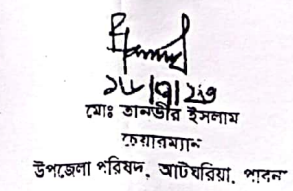 মোঃ তানভীর ইসলাম
চেয়ারম্যান
উপজেলা পরিষদ, আটঘরিয়া, পাবনা